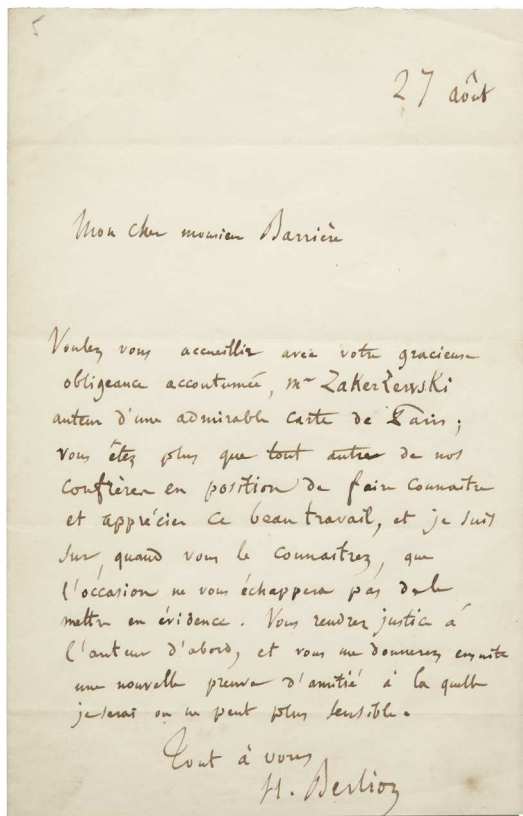 5
27 août
Mon cher monsieur Barrière
Voulez vous accueillir avec votre gracieuse
obligeance accoutumée, mr Zakerzewski
auteur d'une admirable carte de Paris;
vous êtez plus que tout autre de nos
confrères en position de faire connaitre
et apprécier ce beau travail, et je suis
sur, quand vous le connaitrez, que
l'occasion ne vous échappera pas de le
mettre en évidence. Vous rendrez justice à
l'auteur d'abord, et vous me donnerez ensuite
une nouvelle preuve d'amitié à la quelle
je serai on ne peut plus sensible.
Tout à vous
H. Berlioz